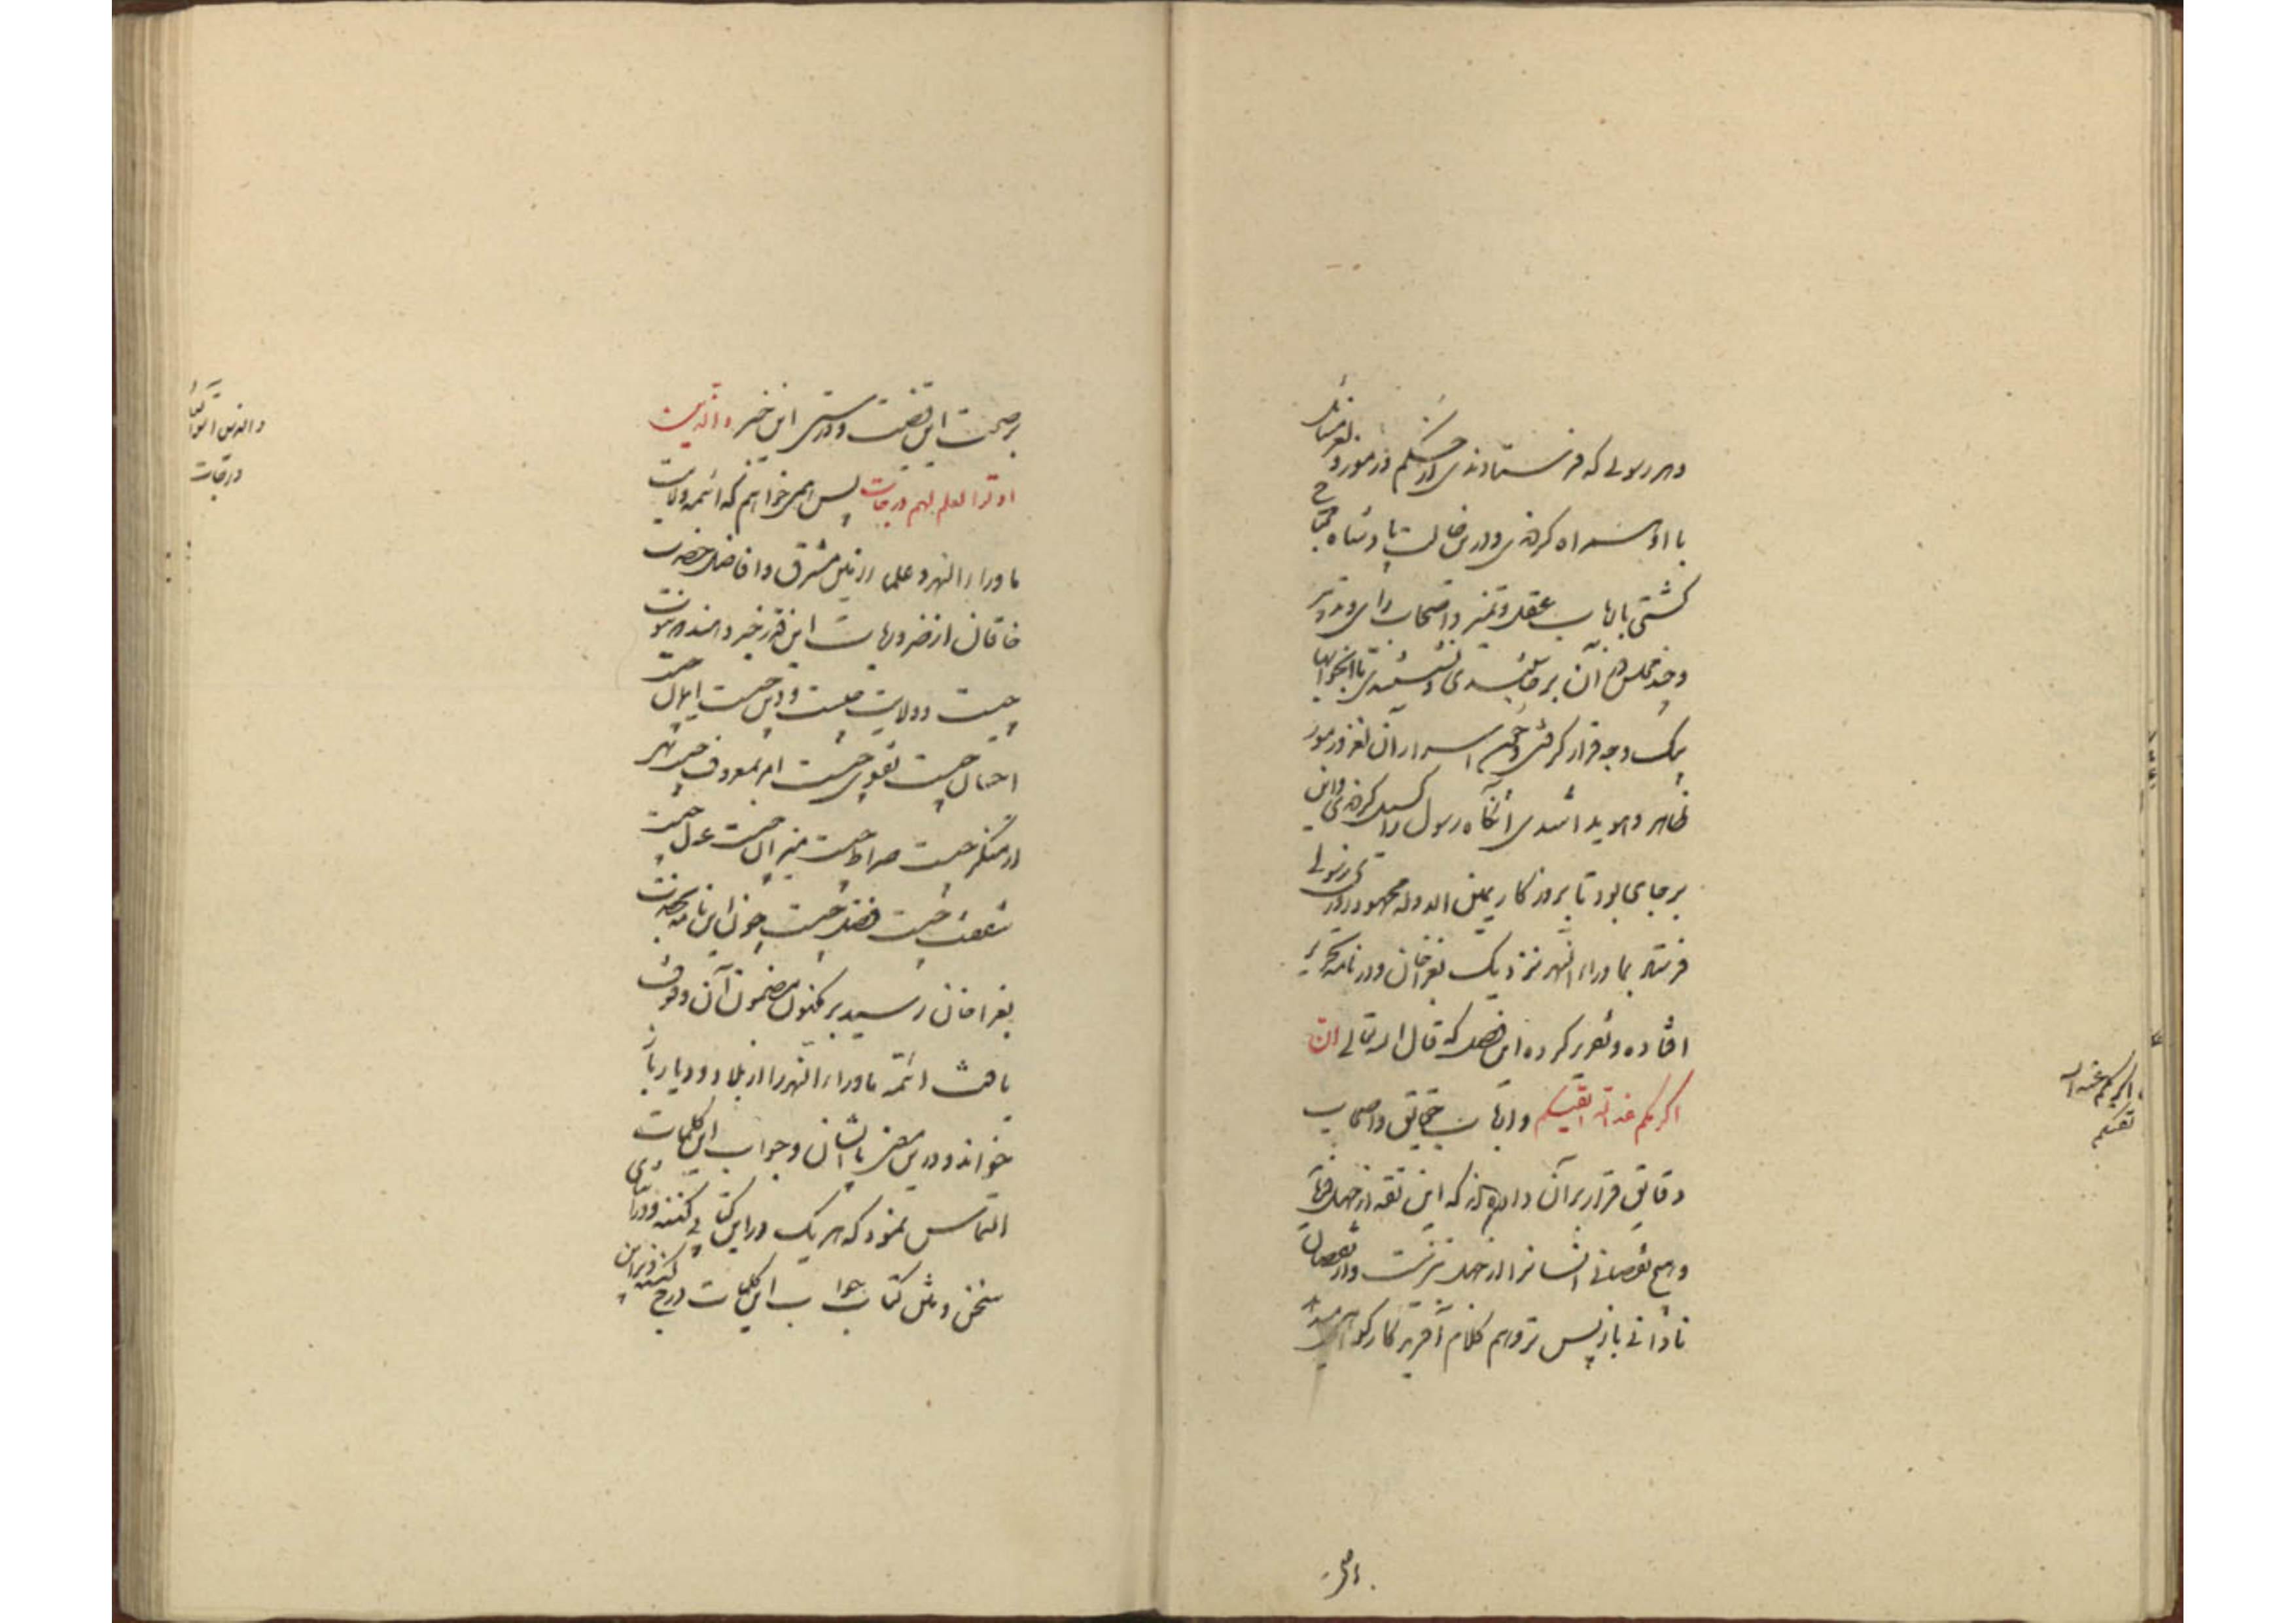 و هر رسولی که فرستادندی از حکم و رموز و لغز مسائل
با او همراه کردندی و درین حالت پادشاه محتاج
گشتی بارباب عقل و تمیز و اصحاب رای و تدبیر
و چند مجلس در آن نشستندی و برخاستندی تا آن جوابها
یک وجه قرار گرفتی و آن لغز و رموز
ظاهر و هویدا شدی آنگاه رسول را گسیل کردندی و این
بر جای بود تا بروزگار یمین الدوله محمود روزی رسولی
فرستاد بماوراء النهر نزدیک بغراخان و در نامه تحریر
افتاده و تقریر کرده این فصل که قال الله تعالی ان
اکرمکم عند الله اتقیکم و ارباب حقایق و اصحاب
دقایق قرار بر آن داده‌اند که این تقیه از جهل فرماید
و هیچ نقصانی انسان را از جهل بتر نیست و از نقصان
نادانی بازپس تر و هم کلام آفریدگار گواهی میدهد
ان
اکرمکم عند الله
اتقیکم
بر صحت این قضیت و درستی این خبر و الذین
اوتوا العلم درجات پس همی خواهم که ائمه ولایت
ماوراء النهر و علماء زمین مشرق و افاضل حضرت
خاقان از ضروریات این قدر خبر دهند که نبوت
چیست و ولایت چیست و دین چیست ایمان چیست
احسان چیست تقوی چیست امر بمعروف چیست نهی
از منکر چیست صراط چیست میزان چیست عدل چیست
شفقت چیست فضل چیست چون این نامه بحضرت
بغراخان رسید بر مکنون و مضمون آن وقوف
یافت ائمه ماوراء النهر را از بلاد و دیار باز
خواند و درین معنی با ایشان و جواب این کلمات
التماس نمود که هر یک درین کتابی کنند و در اثنای
سخن و متن کتاب جواب این کلمات درج کنند و برین
و الذین اوتوا
درجات